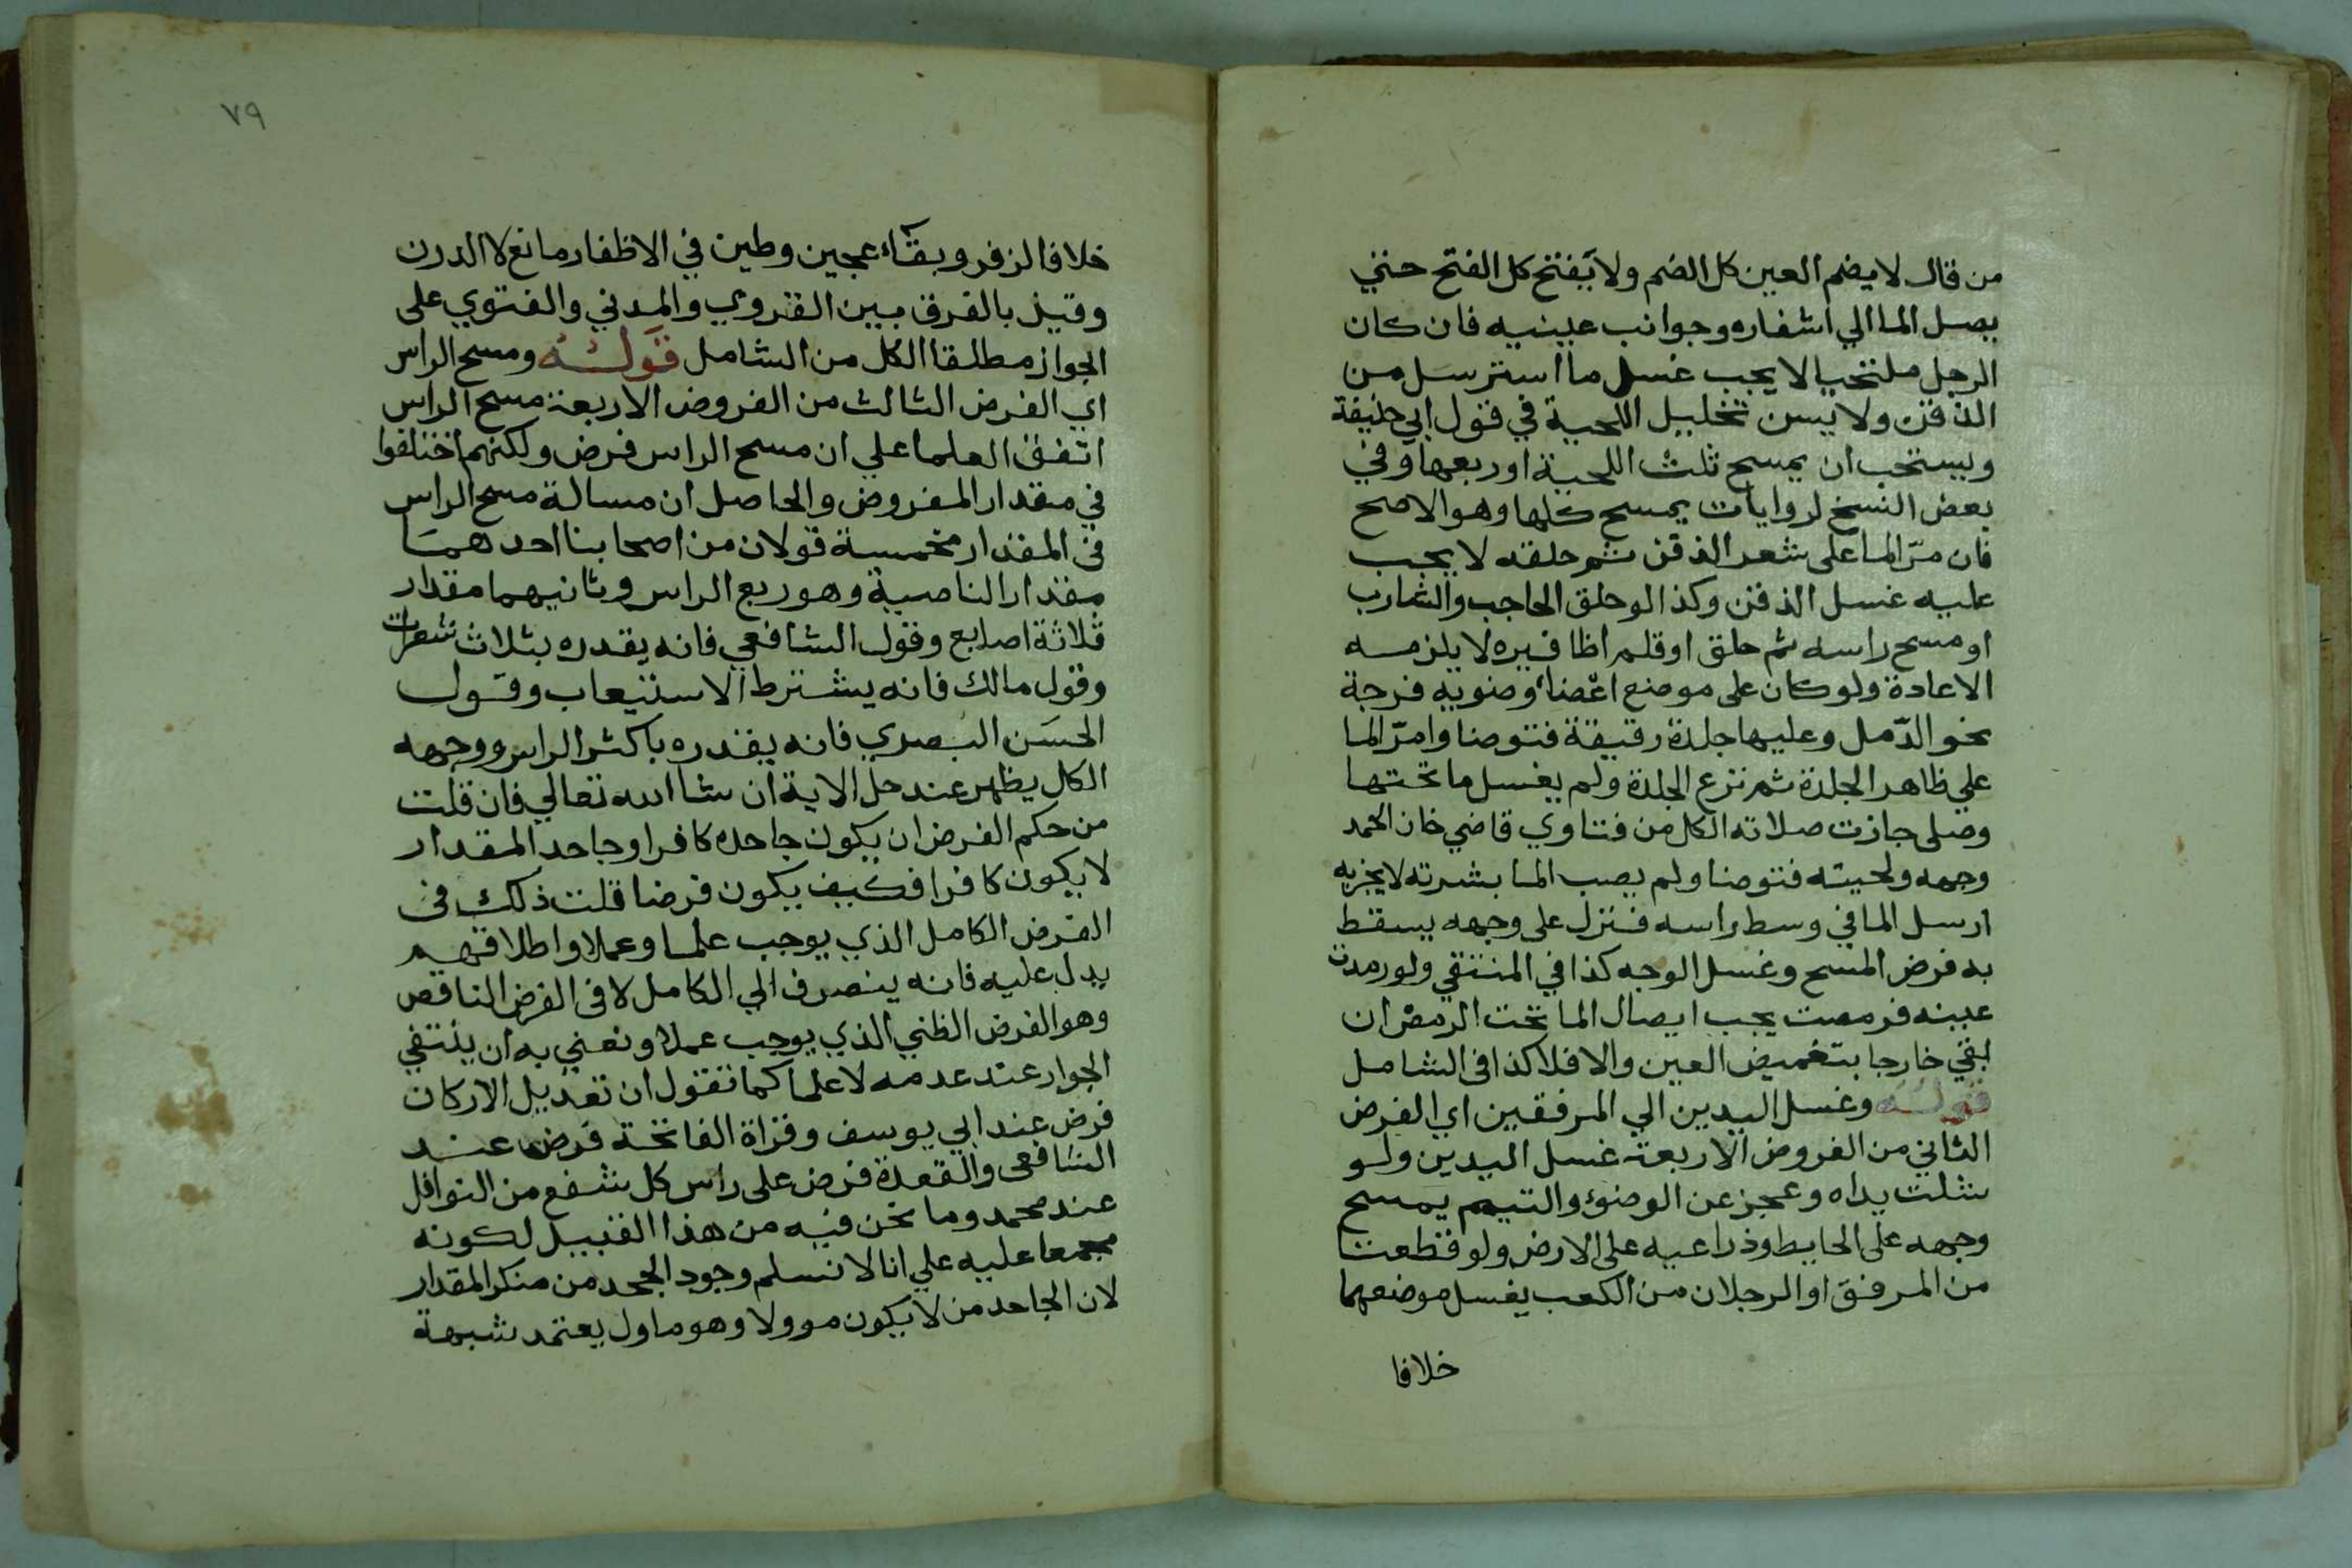 من قال لا يضم العين كل الضم ولا يفتح كل الفتح حتي
يصل الما الي اشفاره وجوانب عينيه فان كان
الرجل ملتحيا لا يجب غسل ما استرسل من
الذقن ولا يسن تخليل اللحية في قول ابي حنيفة
ويستحب ان يمسح ثلث اللحية او ربعها وفي
بعض النسخ لروايات يمسح كلها وهو الاصح
فان مرّ الما على شعر الذقن ثم حلقه لا يجب
عليه غسل الذقن وكذا لو حلق الحاجب والشارب
او مسح راسه ثم حلق او قلم اظافيره لا يلزمه
الاعادة ولو كان على موضع اعضاء وضويه فرجة
نحو الدّمل وعليها جلدة رقيقة فتوضا وامرّ الما
علي ظاهر الجلدة ثم نزع الجلدة ولم يغسل ما تحتها
وصلى جازت صلاته الكل من فتاوي قاضي خان
وجهه ولحيته فتوضا ولم يصب الما بشرته لا يجزيه
ارسل الما في وسط راسه فنزل على وجهه يسقط
به فرض المسح وغسل الوجه كذا في المنتقي ولو رمدت
عينه فرمصت يجب ايصال الما تحت الرمص ان
بقي خارجا بتغميض العين والا فلا كذا في الشامل
قوله وغسل اليدين الي المرفقين اي الفرض
الثاني من الفروض الاربعة غسل اليدين ولو
شلت يداه وعجز عن الوضوء والتيمم يمسح
وجهه على الحايط وذراعيه على الارض ولو قطعتا
من المرفق او الرجلان من الكعب يغسل موضعهما
خلافا
٧٩
خلافا لزفر وبقاء عجين وطين في الاظفار مانع لا الدرن
وقيل بالفرق بين القروي والمدني والفتوي على
الجواز مطلقا الكل من الشامل قوله ومسح الراس
اي الفرض الثالث من الفروض الاربعة مسح الراس
اتفق العلما علي ان مسح الراس فرض ولكنهم اختلفوا
في مقدار المفروض والحاصل ان مسالة مسح الراس
في المقدار مخمسة قولان من اصحابنا احدهما
مقدار الناصية وهو ربع الراس وثانيهما مقدار
ثلاثة اصابع وقول الشافعي فانه يقدره بثلاث شعرات
وقول مالك فانه يشترط الاستيعاب وقول
الحسن البصري فانه يقدره باكثر الراس ووجهه
الكل يظهر عند حل الاية ان شا الله تعالي فان قلت
من حكم الفرض ان يكون جاحده كافرا وجاحد المقدار
لا يكون كافرا فكيف يكون فرضا قلت ذلك في
الفرض الكامل الذي يوجب علما وعملا واطلاقهم
يدل عليه فانه ينصرف الي الكامل لا في الفرض الناقص
وهو الفرض الظني الذي يوجب عملا ونعني به ان ينتفي
الجواز عند عدمه لا علما كما نقول ان تعديل الاركان
فرض عند ابي يوسف وقراة الفاتحة فرض عند
الشافعى والقعدة فرض على راس كل شفع من النوافل
عند محمد وما نحن فيه من هذا القبيل لكونه
مجمعا عليه علي انا لا نسلم وجود الجحد من منكر المقدار
لان الجاحد من لا يكون موولا وهو ماول يعتمد شبهة